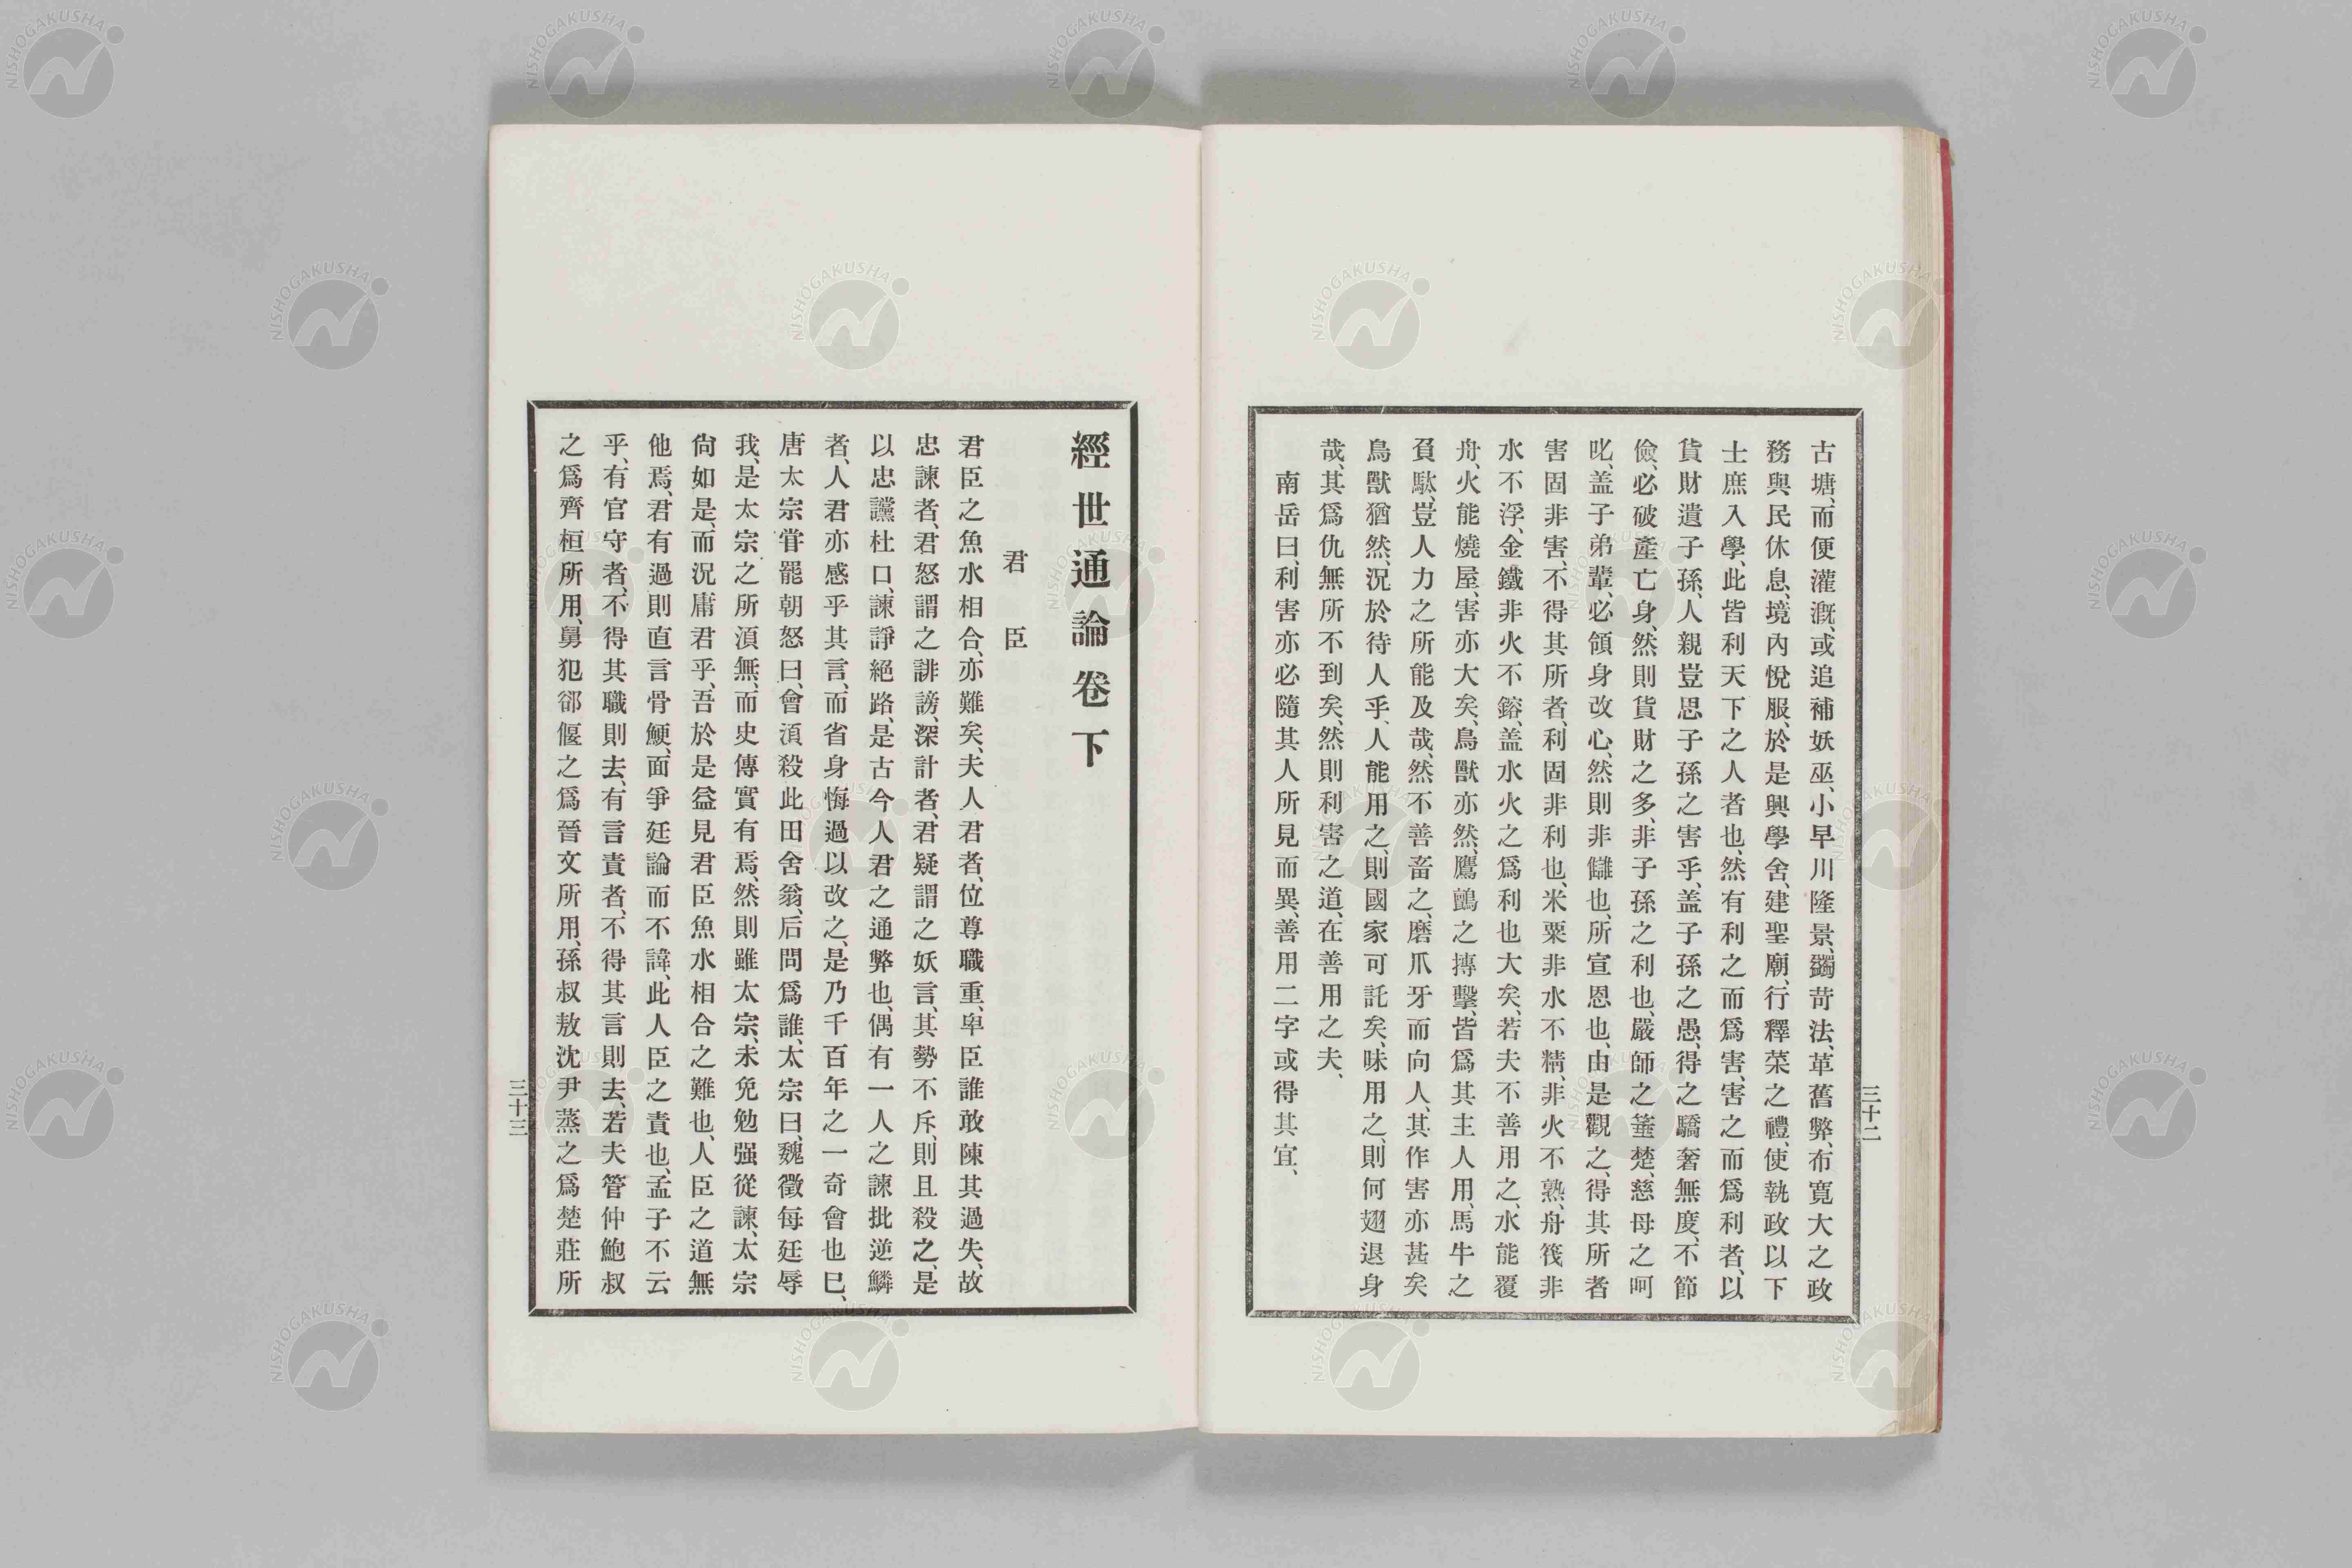 古塘、而便灌漑、或追補妖巫、小早川隆景、蠲苛法、革舊弊、布寬大之政
務與民休息、境內悅服、於是興學舍、建聖廟、行釋菜之禮、使執政以下
士庶入學、此皆利天下之人者也、然有利之而爲害、害之而爲利者、以
貨財遺子孫、人親豈思子孫之害乎、盖子孫之愚、得之驕奢無度、不節
儉、必破產亡身、然則貨財之多、非子孫之利也、嚴師之箠楚、慈母之呵
叱、盖子弟輩、必領身改心、然則非讎也、所宣恩也、由是觀之、得其所者
害固非害、不得其所者、利固非利也、米粟非水不精、非火不熟、舟筏非
水不浮、金鐵非火不鎔、盖水火之爲利也、大矣、若夫不善用之、水能覆
舟、火能燒屋、害亦大矣、鳥獸亦然、鷹鸇之摶擊、皆爲其主人用、馬牛之
負馱、豈人力之所能及哉、然不善畜之、磨爪牙而向人、其作害亦甚矣
鳥獸猶然、況於待人乎、人能用之、則國家可託矣、昧用之、則何翅退身
哉、其爲仇無所不到矣、然則利害之道、在善用之夫、
南岳曰、利害亦必隨其人所見而異、善用二字或得其宜、
三十二
經世通論卷下
君臣
君臣之魚水相合、亦難矣、夫人君者、位尊職重、卑臣誰敢陳其過失、故
忠諫者、君怒謂之誹謗、深計者、君疑謂之妖言、其勢不斥、則且殺之、是
以忠讜杜口、諫諍絕路、是古今人君之通弊也、偶有一人之諫批逆鱗
者、人君亦感乎其言、而省身悔過以改之、是乃千百年之一奇會也已、
唐太宗甞罷朝怒曰、會湏殺此田舍翁、后問爲誰、太宗曰、魏徵每廷辱
我、是太宗之所湏無、而史傳實有焉、然則雖太宗、未免勉强從諫、太宗
尙如是、而況庸君乎、吾於是益見君臣魚水相合之難也、人臣之道無
他焉、君有過則直言骨鯁、面爭廷論而不諱、此人臣之責也、孟子不云
乎、有官守者、不得其職則去、有言責者、不得其言則去、若夫管仲鮑叔
之爲齊桓所用、舅犯郤偃之爲晉文所用、孫叔敖沈尹蒸之爲楚莊所
三十三
NISHOGAKUSHA